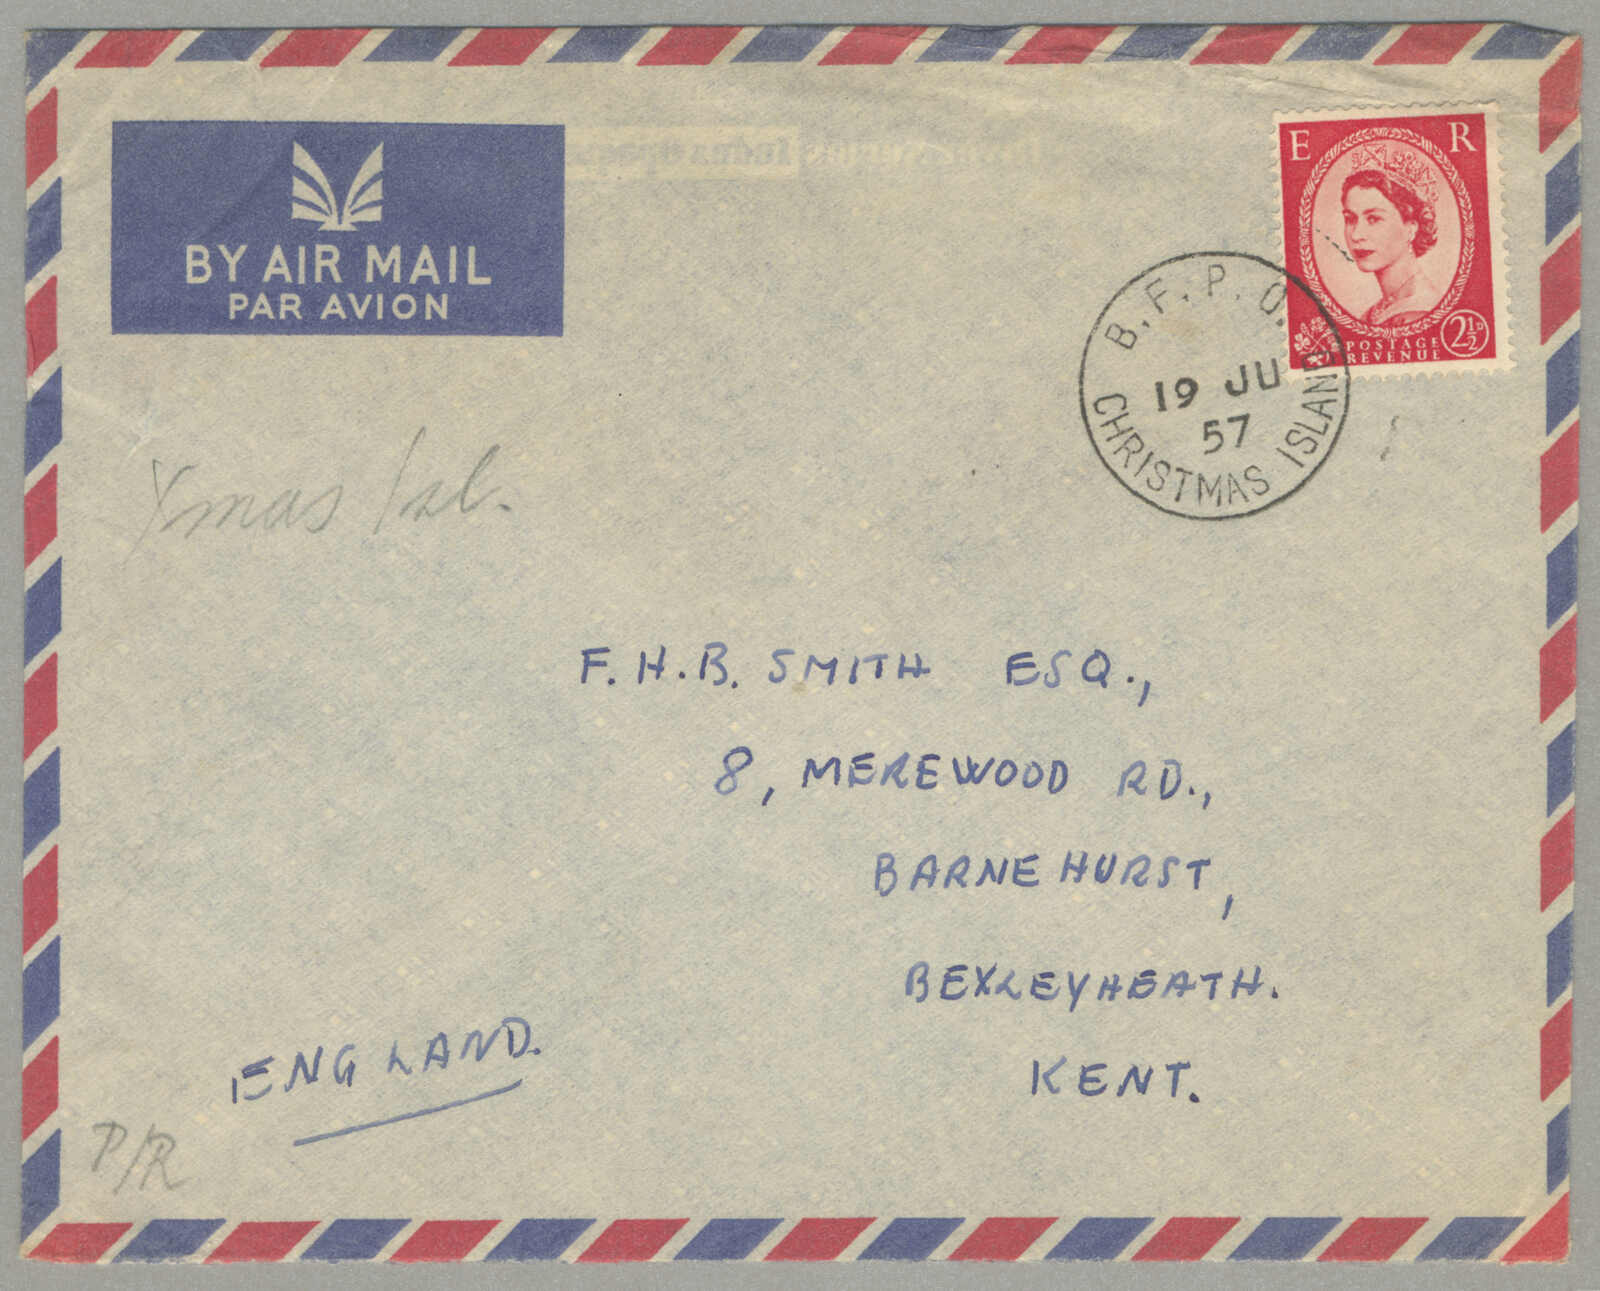 BY AIR MAIL
PAR AVION
E R
POSTAGE
REVENUE
2½D
B.F.P.O.
19 JU
57
CHRISTMAS ISLAND
Xmas Isl.
F.H.B. SMITH ESQ.,
8, MEREWOOD RD.,
BARNEHURST,
BEXLEYHEATH.
KENT.
ENGLAND.
P/R